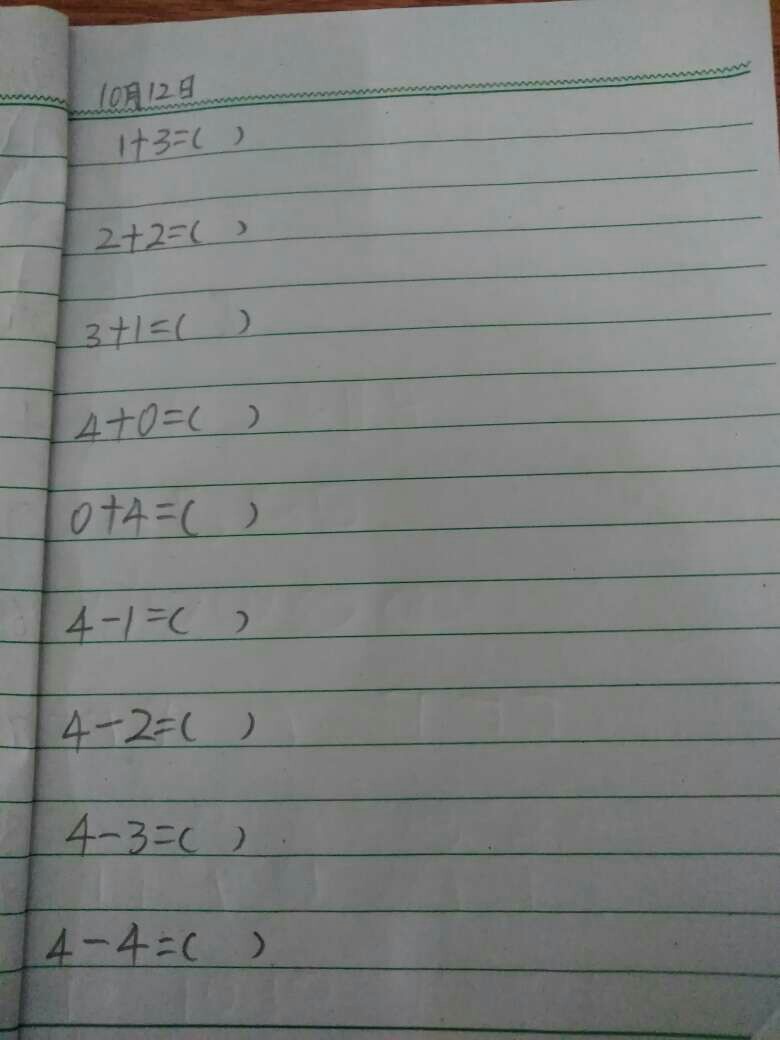 10月12日
1+3=( )
2+2=( )
3+1=( )
4+0=( )
0+4=( )
4-1=( )
4-2=( )
4-3=( )
4-4=( )